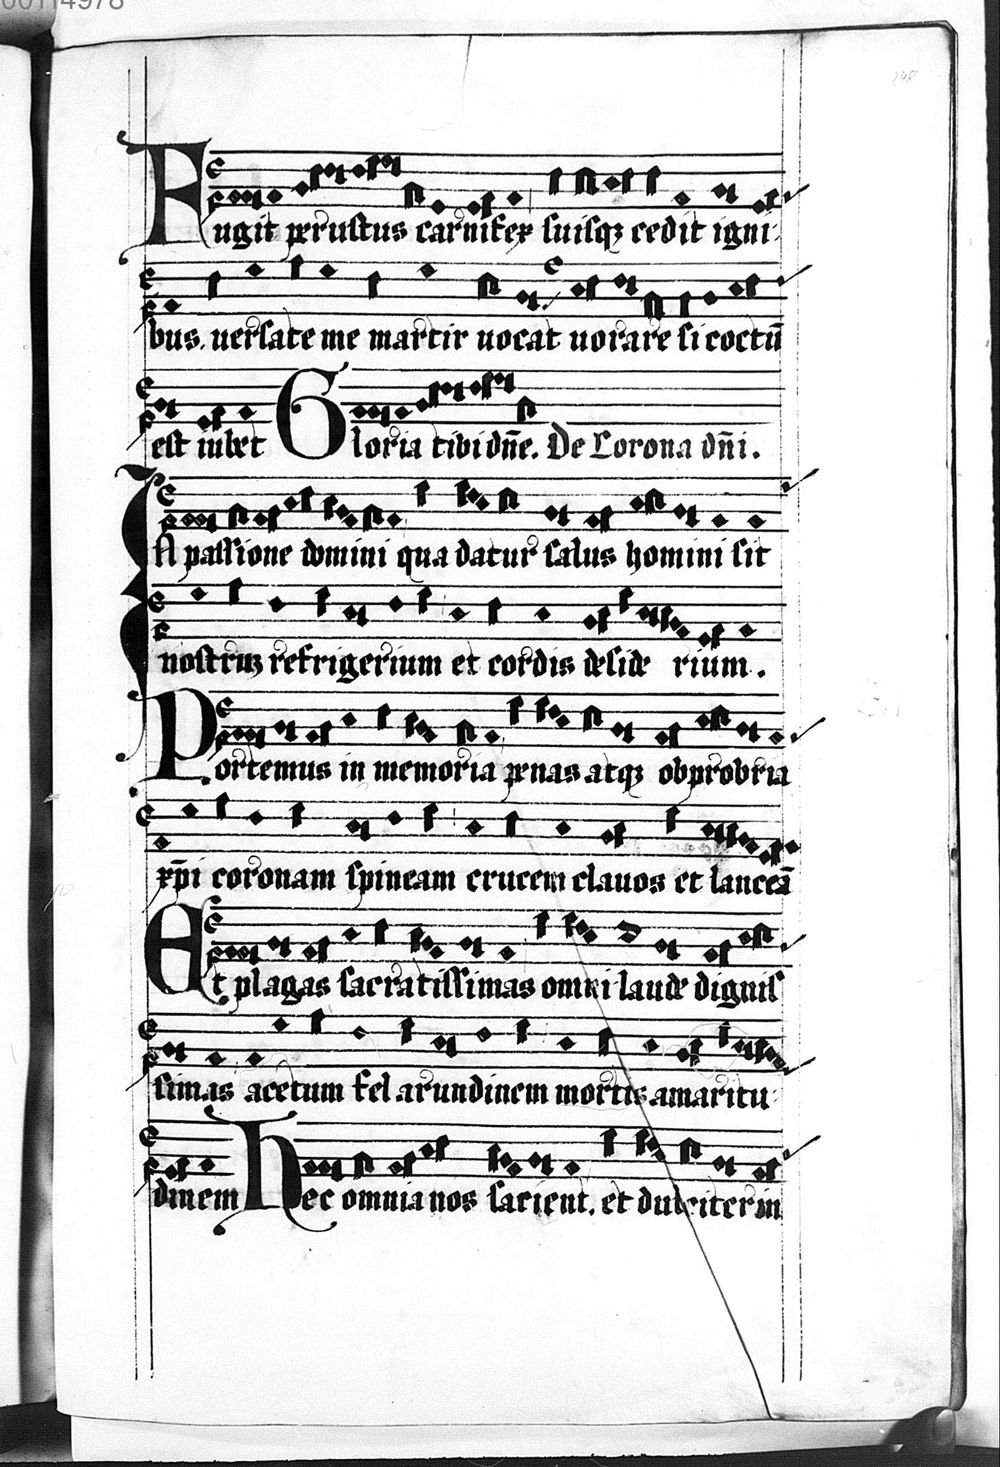 00114978
248
Fugit perustus carnifex suisqꝫ cedit igni-
bus. uersate me martir uocat uorare si coctū
est iubet Gloria tibi dn̄e. De Corona dn̄i.
In passione domini qua datur salus homini sit
nostrūꝫ refrigerium et cordis deside rium.
Portemus in memoria penas atqꝫ obprobria
xp̄i coronam spineam crucem clauos et lanceā
Et plagas sacratissimas omni laude dignis
simas acetum fel arundinem mortis amaritu-
dinem Hec omnia nos sacient. et dulciter in